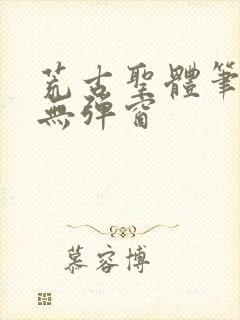 荒古聖體筆
無彈窗
慕容博